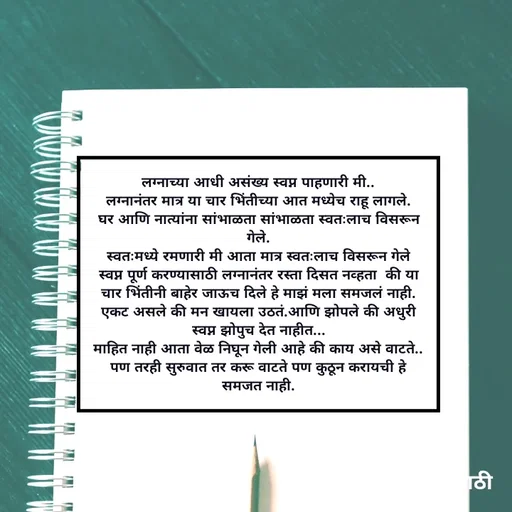 लग्नाच्या आधी असंख्य स्वप्न पाहणारी मी..
लग्नानंतर मात्र या चार भिंतीच्या आत मध्येच राहू लागले.
घर आणि नात्यांना सांभाळता सांभाळता स्वतःलाच विसरून
गेले.
स्वतःमध्ये रमणारी मी आता मात्र स्वतःलाच विसरून गेले
स्वप्न पूर्ण करण्यासाठी लग्नानंतर रस्ता दिसत नव्हता की या
चार भिंतीनी बाहेर जाऊच दिले हे माझं मला समजलं नाही.
एकट असले की मन खायला उठतं.आणि झोपले की अधुरी
स्वप्न झोपुच देत नाहीत...
माहित नाही आता वेळ निघून गेली आहे की काय असे वाटते..
पण तरही सुरुवात तर करू वाटते पण कुठून करायची हे
समजत नाही.